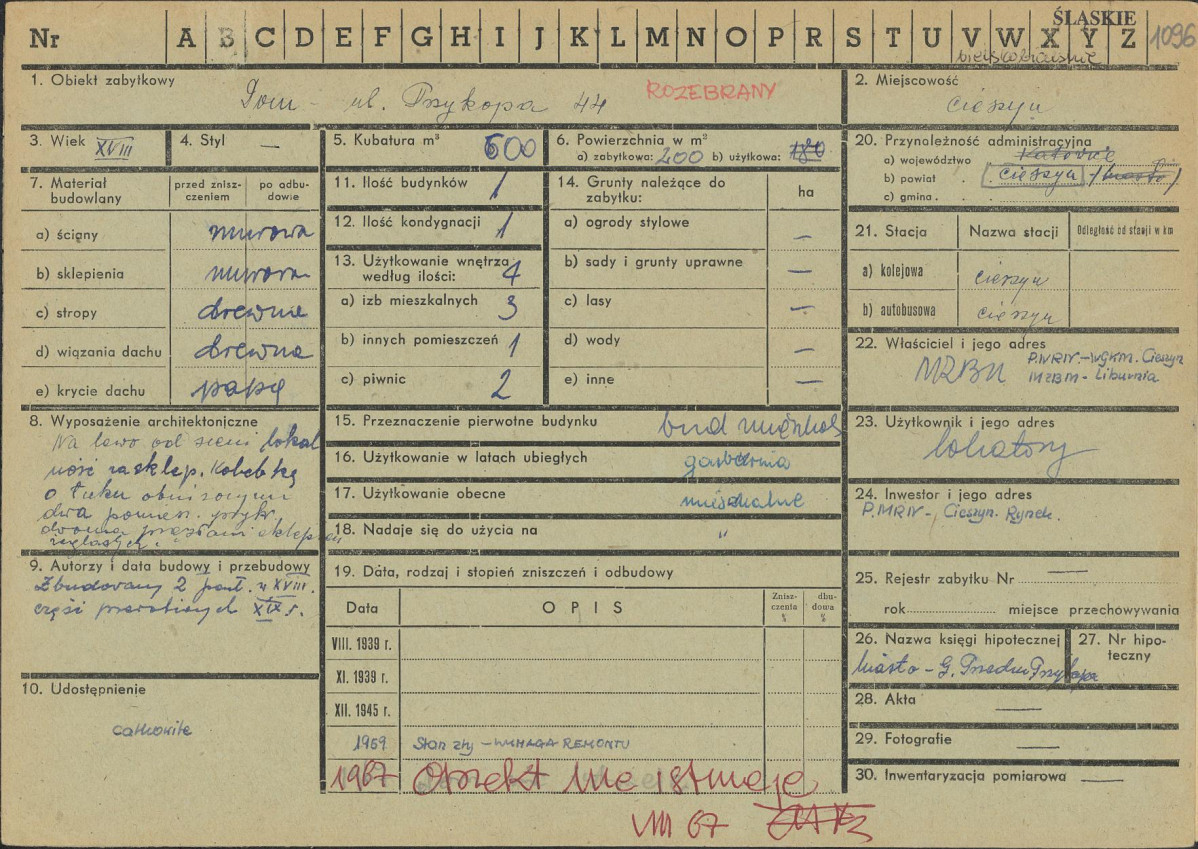 Nr A B C D E F G H I J K L M N O P R S T U V W X Y Z
ŚLĄSKIE
1096
bielskobialskie
1. Obiekt zabytkowy
Dom - ul. Przykopa 44
ROZEBRANY
2. Miejscowość
Cieszyn
3. Wiek XVIII
4. Styl —
5. Kubatura m³ 600
6. Powierzchnia w m²
a) zabytkowa: 200 b) użytkowa: 180
20. Przynależność administracyjna
a) województwo Katowice
b) powiat . Cieszyn (miasto)
c) gmina .
7. Materiał budowlany
przed zniszczeniem
po odbudowie
a) ściany murowa
b) sklepienia murowa
c) stropy drewnia
d) wiązania dachu drewna
e) krycie dachu papą
11. Ilość budynków 1
12. Ilość kondygnacji 1
13. Użytkowanie wnętrza według ilości: 4
a) izb mieszkalnych 3
b) innych pomieszczeń 1
c) piwnic 2
14. Grunty należące do zabytku:
ha
a) ogrody stylowe —
b) sady i grunty uprawne —
c) lasy —
d) wody —
e) inne —
21. Stacja
Nazwa stacji
Odległość od stacji w km
a) kolejowa Cieszyn
b) autobusowa Cieszyn
22. Właściciel i jego adres
MZBM
P.MRN.-WGKM. Cieszyn
MZBM - Liburnia
8. Wyposażenie architektoniczne
Na lewo od sieni lokal
ność zasklep. Kolebką
o łuku obniżonym
dwa pomiesz. przykr.
dwoma przęsłami sklepień
żeglastych.
15. Przeznaczenie pierwotne budynku bud mieszkal
16. Użytkowanie w latach ubiegłych garbarnia
17. Użytkowanie obecne mieszkalne
18. Nadaje się do użycia na "
23. Użytkownik i jego adres
lokatorzy
24. Inwestor i jego adres
P.MRN- Cieszyn. Rynek.
9. Autorzy i data budowy i przebudowy
Zbudowany 2 poł. w XVIII.
części przerobionych XIX r.
19. Data, rodzaj i stopień zniszczeń i odbudowy
Data
OPIS
Zniszczenia %
dbudowa %
VIII. 1939 r.
XI. 1939 r.
XII. 1945 r.
1959 Stan zły - WYMAGA REMONTU
1967 Obiekt nie istnieje
VIII 67
25. Rejestr zabytku Nr —
rok miejsce przechowywania
26. Nazwa księgi hipotecznej
Miasto - G. Przedm. Przykopa
27. Nr hipoteczny
10. Udostępnienie
całkowite
28. Akta —
29. Fotografie —
30. Inwentaryzacja pomiarowa —